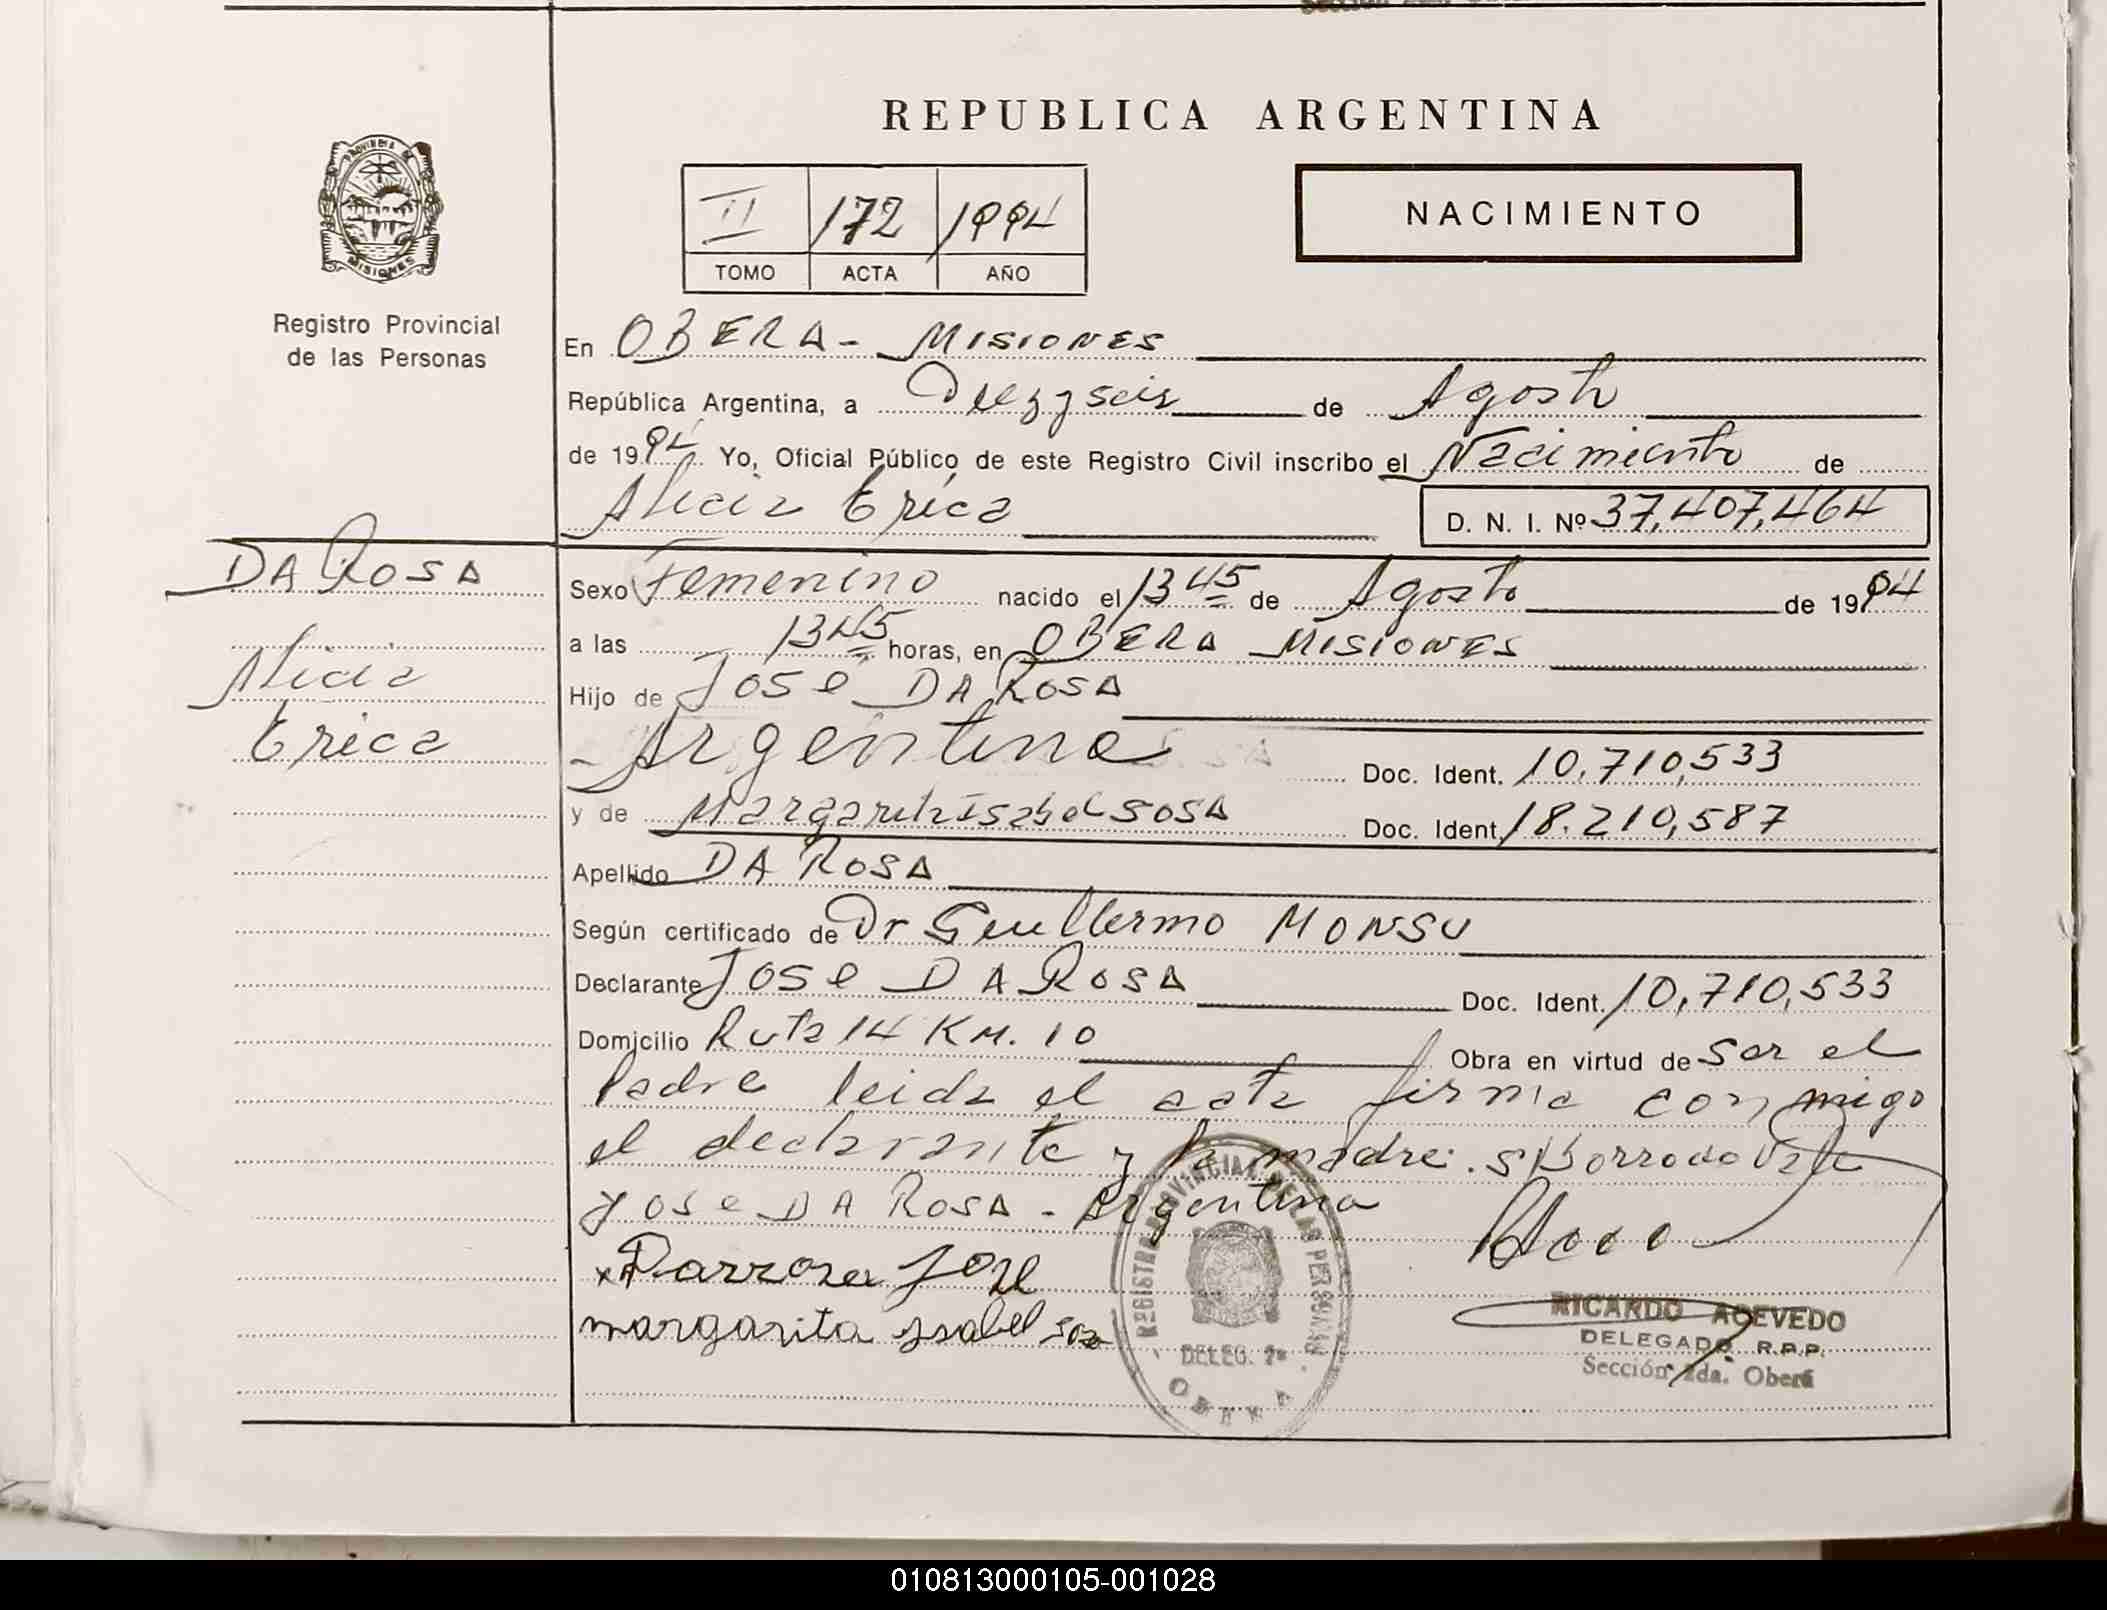 REPUBLICA ARGENTINA
PROVINCIA DE
MISIONES
Registro Provincial
de las Personas
II 172 1994
TOMO ACTA AÑO
NACIMIENTO
En OBERA - MISIONES
República Argentina, a Diez y seis de Agosto
de 1994. Yo, Oficial Público de este Registro Civil inscribo el Nacimiento de
Alicia Erica D. N. I. Nº 37,407,464
DA ROSA
Alicia
Erica
Sexo Femenino nacido el 13 45 de Agosto de 1994
a las 13 45 horas, en OBERA MISIONES
Hijo de José DA ROSA
- Argentina Doc. Ident. 10,710,533
y de Margarita Isabel SOSA Doc. Ident. 18.210,587
Apellido DA ROSA
Según certificado de Dr Guillermo MONSU
Declarante José DA ROSA Doc. Ident. 10,710,533
Domicilio Ruta 14 KM. 10 Obra en virtud de ser el
Padre leida el acta firma conmigo
el declarante y la madre. S/Borrado Vale
José DA ROSA - Argentina
x Darrosa José
margarita ysabel sosa
REGISTRO PROVINCIAL DE LAS PERSONAS
DELEG. 2ª
OBERA
RICARDO ACEVEDO
DELEGADO R.P.P.
Sección 2da. Oberá
010813000105-001028